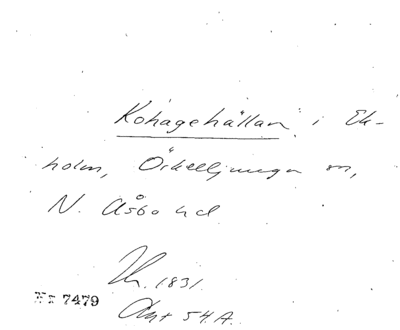 Kohagehällan i Ek-
holm, Örkelljunga sn,
N. Åsbo hd
1831.
Nr 7479
54 A.